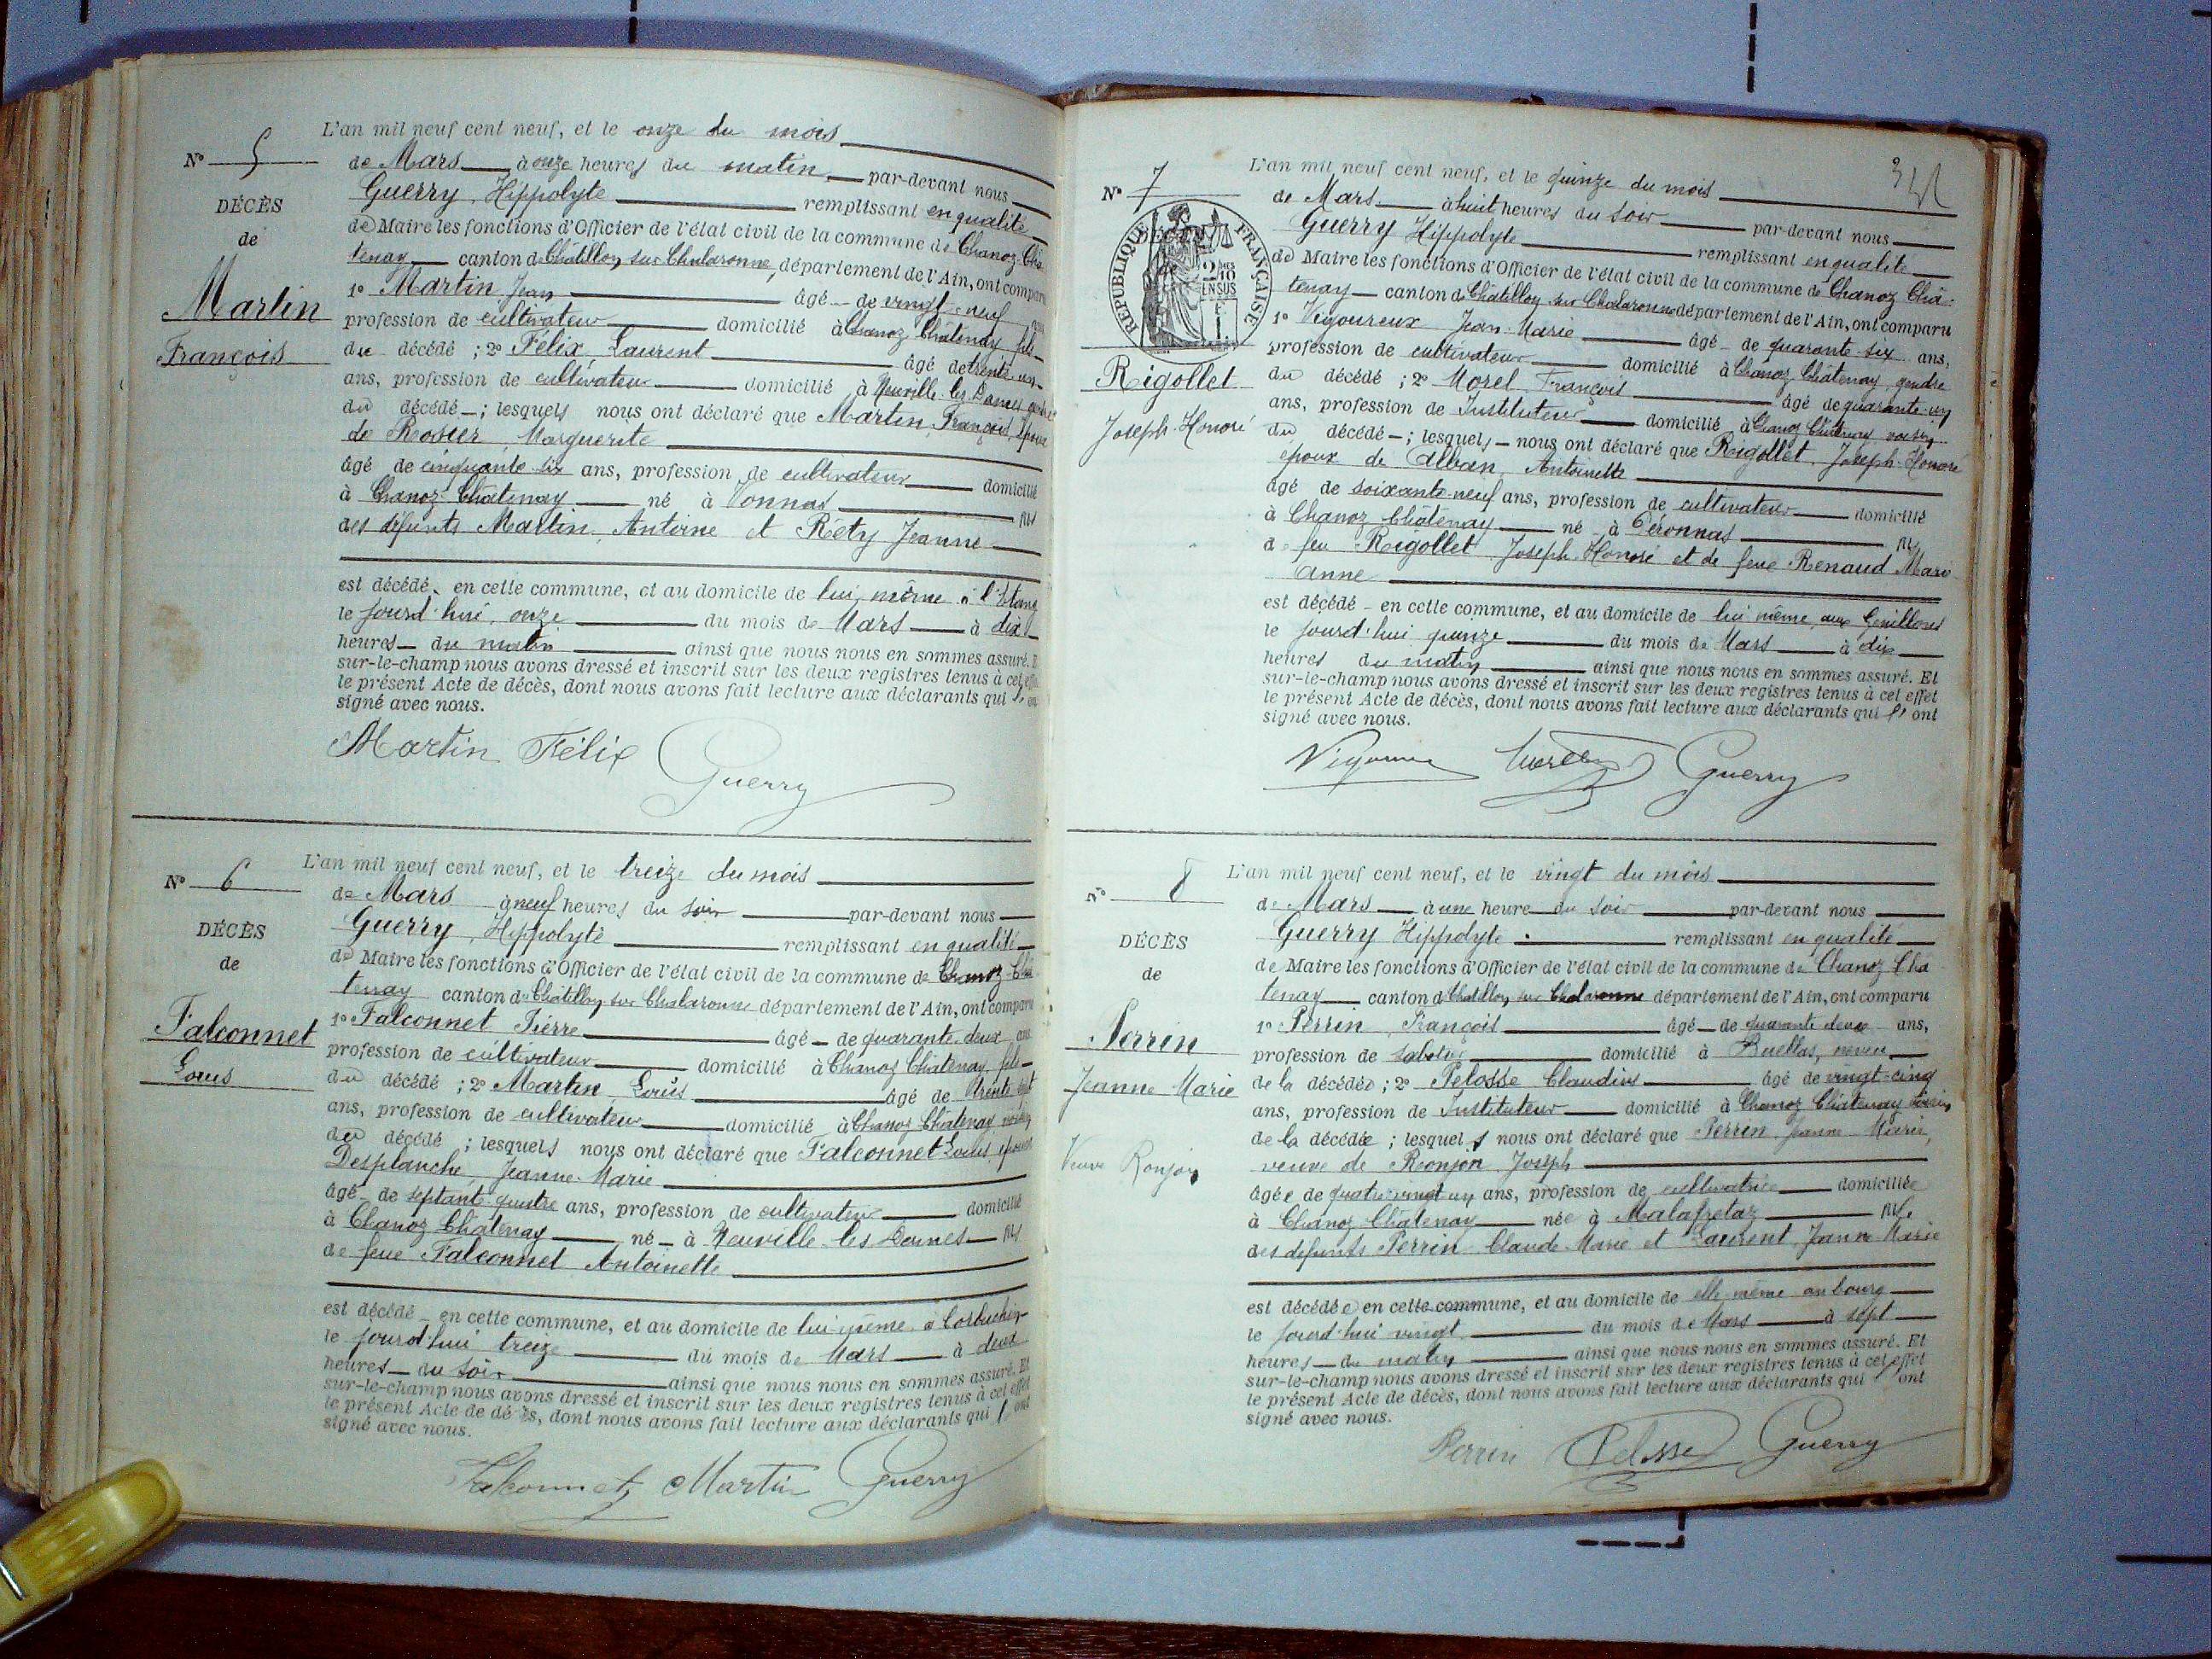 N° 5
DÉCÈS
de
Martin
François
L'an mil neuf cent neuf, et le onze du mois
de Mars à onze heures du matin, par-devant nous
Guerry, Hippolyte remplissant en qualité
de Maire les fonctions d'Officier de l'état civil de la commune de Chanoz-Châ
tenay canton de Châtillon sur Chalaronne, département de l'Ain, ont compar
1° Martin Jean âgé de vingt-neuf
profession de cultivateur domicilié à Chanoz Châtenay fils
du décédé ; 2° Félix, Laurent âgé de trente-un
ans, profession de cultivateur domicilié à Neuville-les-Dames
du décédé ; lesquels nous ont déclaré que Martin, François, époux
de Rosier, Marguerite
âgé de cinquante six ans, profession de cultivateur domicilié
à Chanoz-Châtenay né à Vonnas fils
des défunts Martin, Antoine et Réty Jeanne
est décédé en cette commune, et au domicile de lui-même à l'Etang
le jourd'hui, onze du mois de Mars à dix
heures du matin ainsi que nous nous en sommes assuré.
sur-le-champ nous avons dressé et inscrit sur les deux registres tenus à cet
le présent Acte de décès, dont nous avons fait lecture aux déclarants qui
signé avec nous.
Martin Félix Guerry
N° 6
DÉCÈS
de
Falconnet
Louis
L'an mil neuf cent neuf, et le treize du mois
de Mars à neuf heures du soir par-devant nous
Guerry, Hippolyte remplissant en qualité
de Maire les fonctions d'Officier de l'état civil de la commune de Chanoz-Châ
tenay canton de Châtillon sur Chalaronne département de l'Ain, ont comparu
1° Falconnet Pierre âgé de quarante-deux ans
profession de cultivateur domicilié à Chanoz Châtenay, fils
du décédé ; 2° Martin, Louis âgé de trente
ans, profession de cultivateur domicilié à Chanoz Châtenay voisin
du décédé ; lesquels nous ont déclaré que Falconnet Louis, époux
Desplanche, Jeanne-Marie
âgé de septante-quatre ans, profession de cultivateur domicilié
à Chanoz Châtenay né à Neuville-les-Dames fils
de feue Falconnet Antoinette
est décédé en cette commune, et au domicile de lui-même, à
le jourd'hui treize du mois de Mars à deux
heures du soir ainsi que nous nous en sommes assuré. Et
sur-le-champ nous avons dressé et inscrit sur les deux registres tenus à cet effet
le présent Acte de décès, dont nous avons fait lecture aux déclarants qui ont
signé avec nous.
Falconnet Martin Guerry
N° 7
DÉCÈS
de
RÉPUBLIQUE FRANÇAISE
2/10
EN SUS
Rigollet
Joseph-Honoré
L'an mil neuf cent neuf, et le quinze du mois
de Mars à huit heures du soir par-devant nous
Guerry Hippolyte remplissant en qualité
de Maire les fonctions d'Officier de l'état civil de la commune de Chanoz Châ-
tenay canton de Châtillon sur Chalaronne département de l'Ain, ont comparu
1° Vigoureux Jean-Marie âgé de quarante-six ans,
profession de cultivateur domicilié à Chanoz Châtenay, gendre
du décédé ; 2° Morel François âgé de quarante-un
ans, profession de Instituteur domicilié à Chanoz Châtenay voisin
du décédé ; lesquels nous ont déclaré que Rigollet, Joseph-Honoré
époux de Alban, Antoinette
âgé de soixante-neuf ans, profession de cultivateur domicilié
à Chanoz Châtenay né à Péronnas fils
de feu Rigollet Joseph-Honoré et de feue Renaud Marie
Anne
est décédé en cette commune, et au domicile de lui même, aux
le jourd'hui quinze du mois de Mars à dix
heures du matin ainsi que nous nous en sommes assuré. Et
sur-le-champ nous avons dressé et inscrit sur les deux registres tenus à cet effet
le présent Acte de décès, dont nous avons fait lecture aux déclarants qui l'ont
signé avec nous.
Guerry
N° 8
DÉCÈS
de
Perrin
Jeanne Marie
Veuve Ronjon
L'an mil neuf cent neuf, et le vingt du mois
de Mars à une heure du soir par-devant nous
Guerry Hippolyte remplissant en qualité
de Maire les fonctions d'Officier de l'état civil de la commune de Chanoz Châ
tenay canton de Châtillon sur Chalaronne département de l'Ain, ont comparu
1° Perrin, François âgé de quarante deux ans,
profession de sabotier domicilié à Buellas, neveu
de la décédée ; 2° Pelosse Claudius âgé de vingt-cinq
ans, profession de Instituteur domicilié à Chanoz Châtenay voisin
de la décédée ; lesquels nous ont déclaré que Perrin Jeanne-Marie,
veuve de Ronjon Joseph
âgée de quatre-vingt-un ans, profession de cultivatrice domiciliée
à Chanoz Châtenay née à Malafretaz fille
des défunts Perrin Claude-Marie et Laurent Jeanne Marie
est décédée en cette commune, et au domicile de elle-même au bourg
le jourd'hui vingt du mois de Mars à sept
heures du matin ainsi que nous nous en sommes assuré. Et
sur-le-champ nous avons dressé et inscrit sur les deux registres tenus à cet effet
le présent Acte de décès, dont nous avons fait lecture aux déclarants qui l'ont
signé avec nous.
Perrin Pelosse Guerry